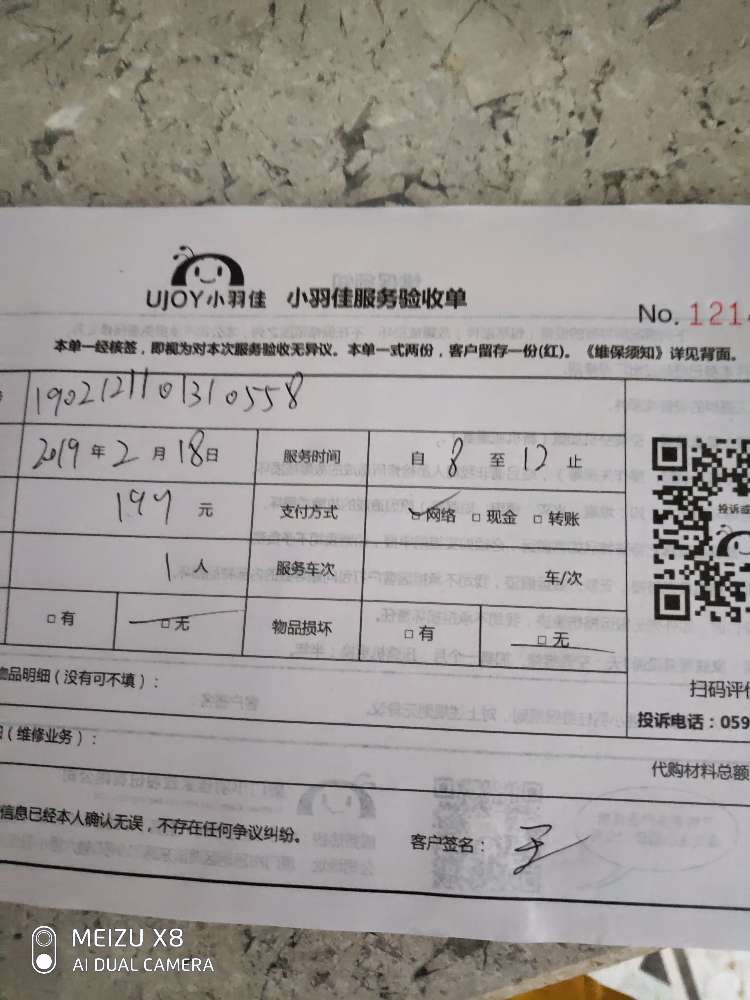 UJOY小羽佳 小羽佳服务验收单
No. 121
本单一经核签，即视为对本次服务验收无异议。本单一式两份，客户留存一份(红)。《维保须知》详见背面。
1902121101310558
2019年2月18日 服务时间 自8至12止
197元 支付方式 □网络 □现金 □转账
1人 服务车次 车/次
□有 □无 物品损坏 □有 □无
投诉或
扫码评
投诉电话：059
物品明细（没有可不填）：
（维修业务）：
代购材料总额
信息已经本人确认无误，不存在任何争议纠纷。 客户签名：
MEIZU X8
AI DUAL CAMERA